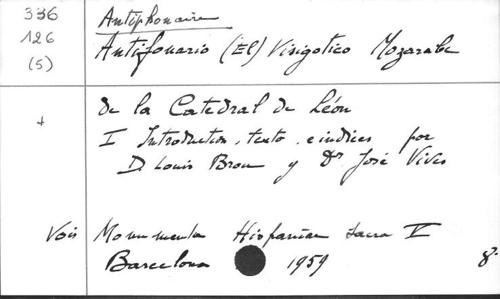 336
126
(5)
Antiphonaire
Antifonario (El) Visigotico Mozarabe
de la Catedral de Léon
+
I Introduction, texto, e indices por
D Louis Brou y Dr José Vives
Vois Monumenta Hispaniae Sacra V
Barcelona 1959 8°